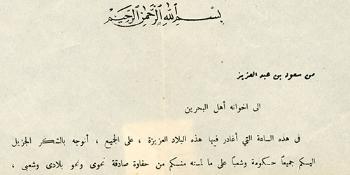 بسم الله الرحمن الرحيم
من سعود بن عبد العزيز
الى اخوانه أهل البحرين
فى هذه الساعة التي أغادر فيها هذه البلاد العزيزة ، على الجميع ، أتوجه بالشكر الجزيل
اليكم جميعا حكومة وشعبا على ما لمسته منكم من حفاوة صادقة نحوى ونحو بلادى وشعبى ،